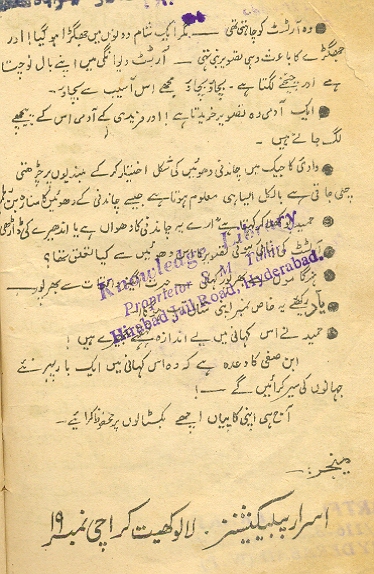 وہ آرٹسٹ کو چاہتی تھی ــــ مگر ایک شام دونوں میں جھگڑا ہو گیا! اور
جھگڑے کا باعث وہی تصویر بنی تھی ــــ آرٹسٹ دیوانگی میں اپنے بال نوچتا
ہے اور چیخنے لگتا ہے۔ بچاؤ بچاؤ۔ مجھے اس آسیب سے بچاؤ۔
ایک آدمی وہ تصویر خریدتا ہے! اور فریدی کے آدمی اس کے پیچھے
لگ جاتے ہیں۔
وادی کاجیک میں چاندنی دھوئیں کی شکل اختیار کر کے بلندیوں پر چڑھتی
چلی جاتی ہے بالکل ایسا ہی معلوم ہوتا ہے جیسے چاندنی کے دھوئیں
حمید کہتا ہے ارے یہ چاندنی کا دھواں ہے یا اندھیرے کی
آرٹسٹ کی تصویر کا اس دھوئیں سے کیا تعلق تھا؟
سے بھرپور
یاد رکھئے یہ خاص نمبر اپنی
حمید نے اس کہانی میں بے اندازہ ہیں!
ابن صفی کا وعدہ ہے کہ وہ اس کہانی میں ایک بار پھر نئے
جہانوں کی سیر کرائیں گے ــــ!
آج ہی اپنی کاپیاں اچھے بکسٹالوں پر محفوظ کرائیے۔
Knowledge Library
Proprietor S. M.
Hirabad Jail Road, Hyderabad.
منیجر:ــ
اسرار پبلیکیشنز۔ لالوکھیت کراچی نمبر ۱۹